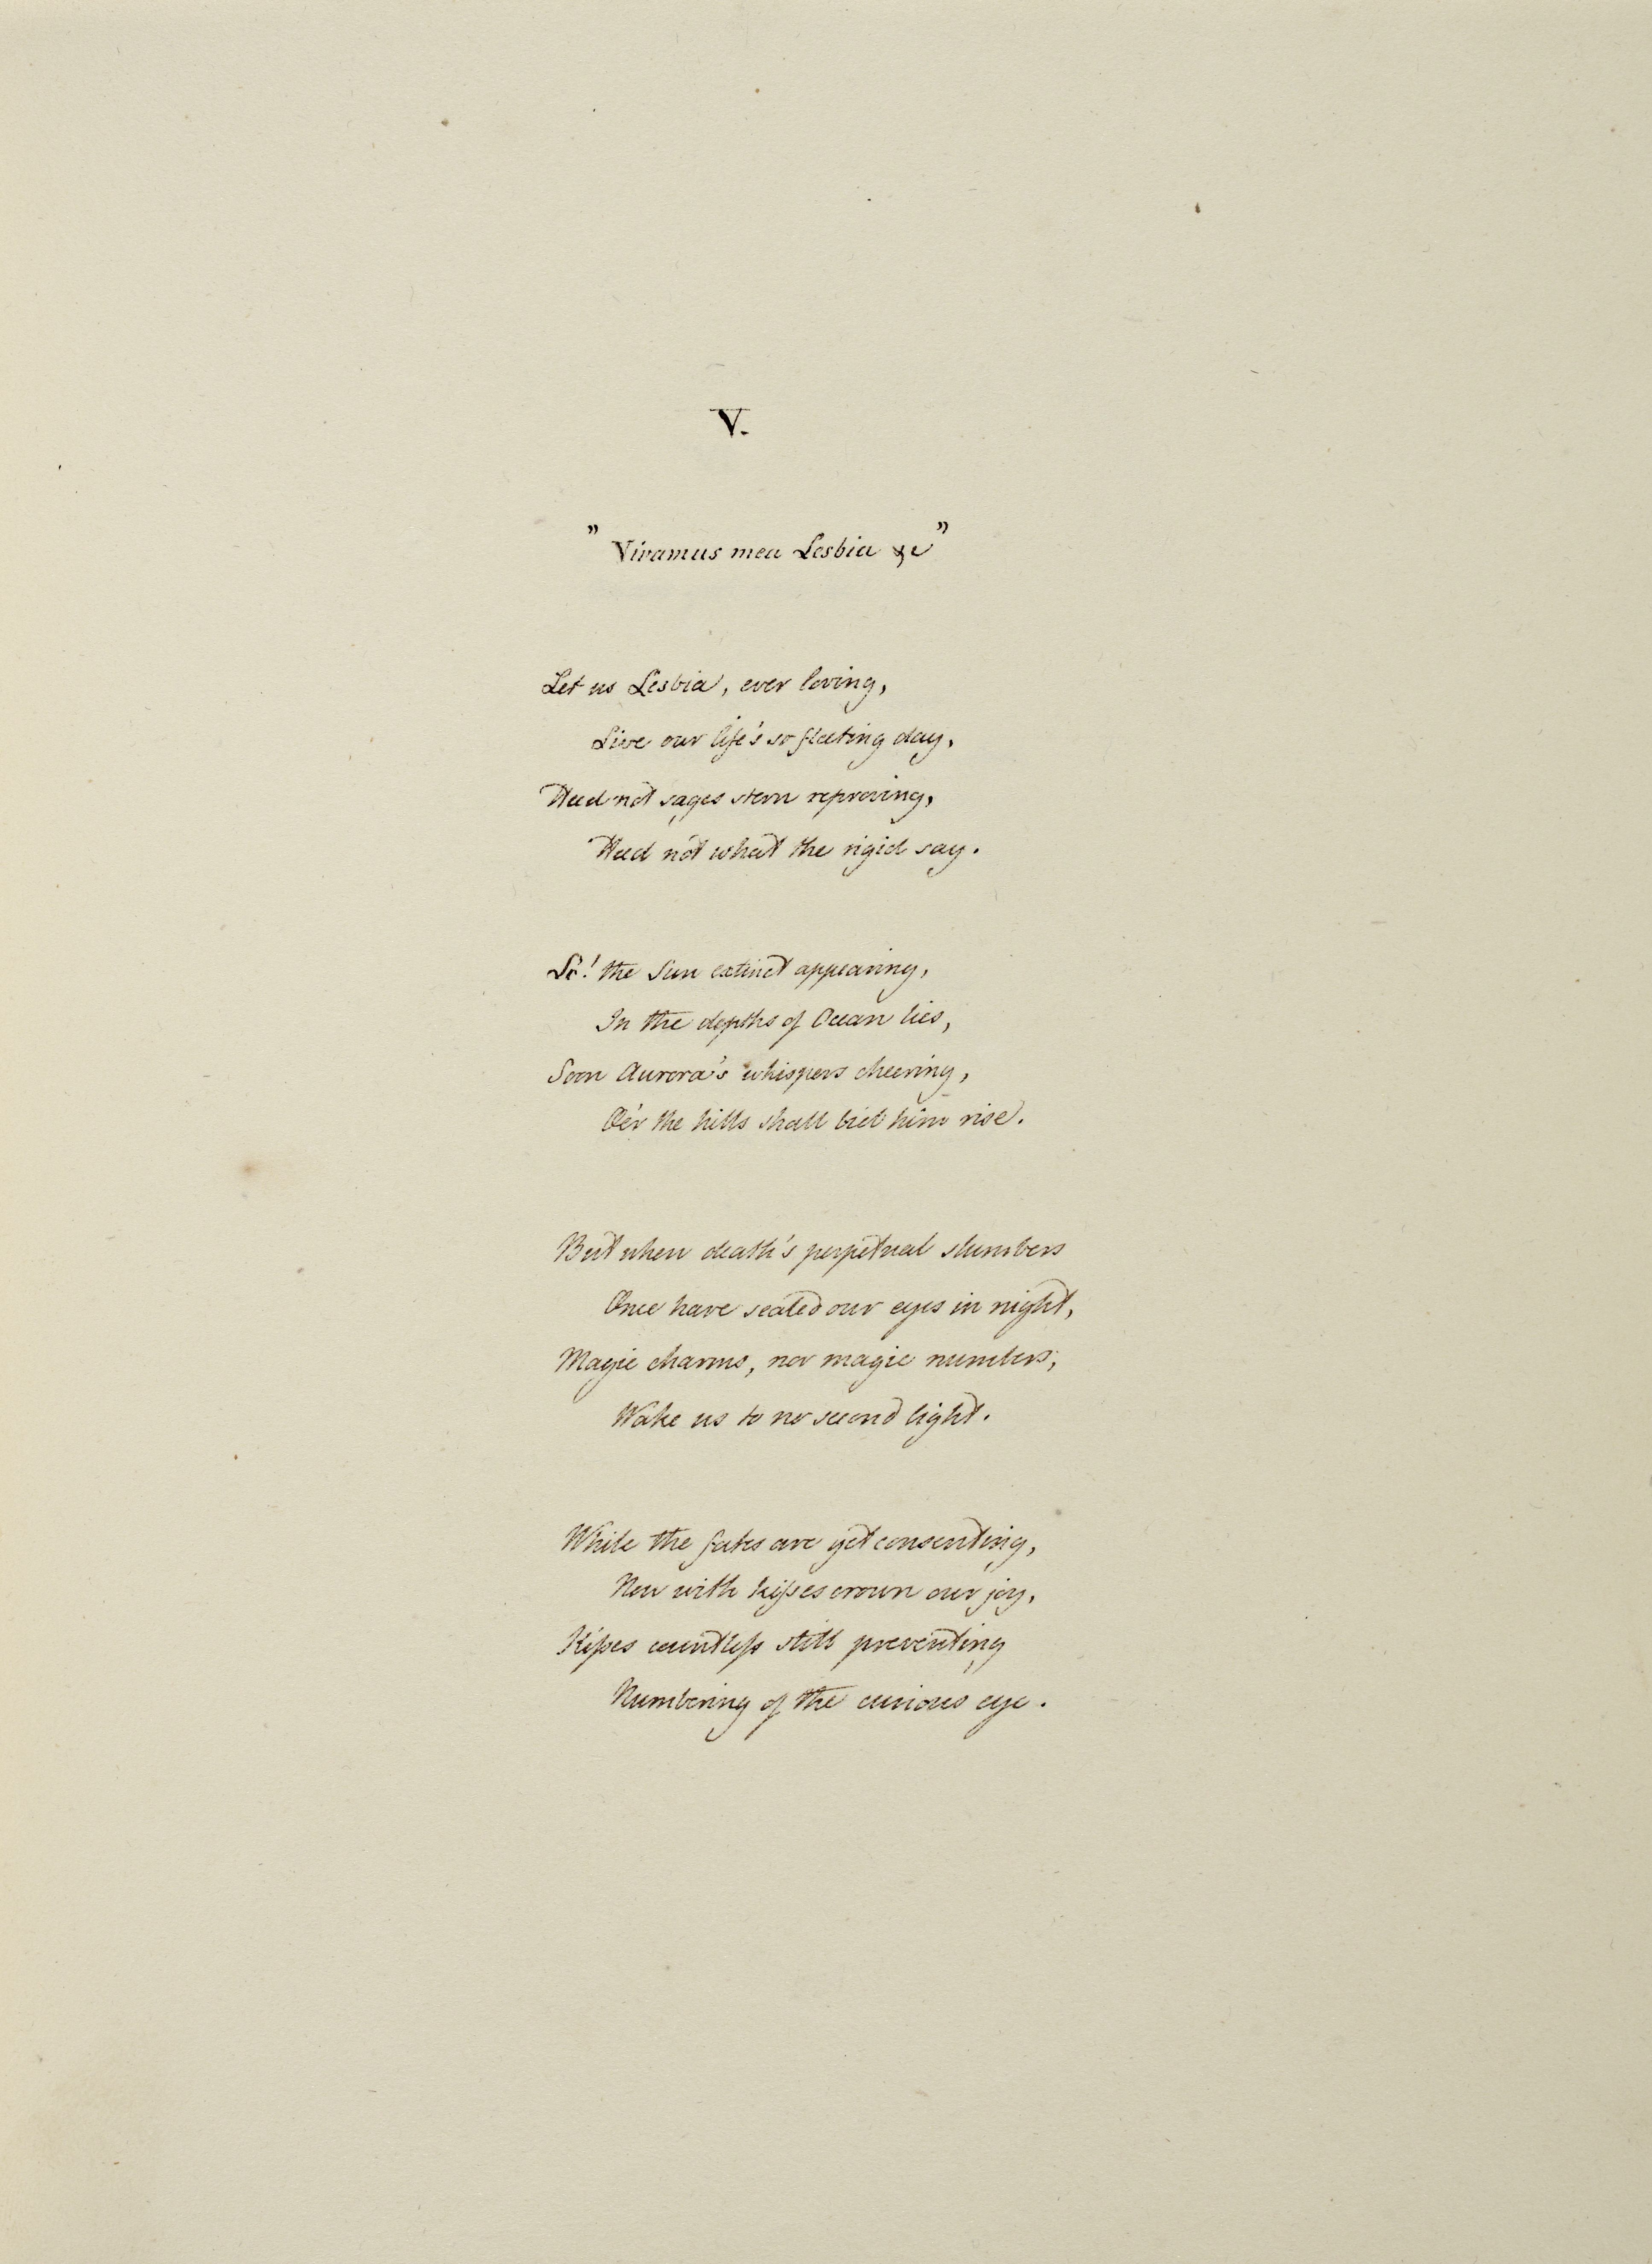 V.
" Vivamus mea Lesbia &c "
Let us Lesbia, ever loving,
Live our life's so fleeting day,
Heed not sages stern reproving,
Heed not what the rigid say.
Lo! the Sun extinct appearing,
In the depths of Ocean lies,
Soon Aurora's whispers cheering,
Oe'r the hills shall bid him rise.
But when death's perpetual slumbers
Once have sealed our eyes in night,
Magic charms, nor magic numbers,
Wake us to no second light.
While the fates are yet consenting,
Now with kisses crown our joy,
Kisses countless still preventing
Numbering of the curious eye.